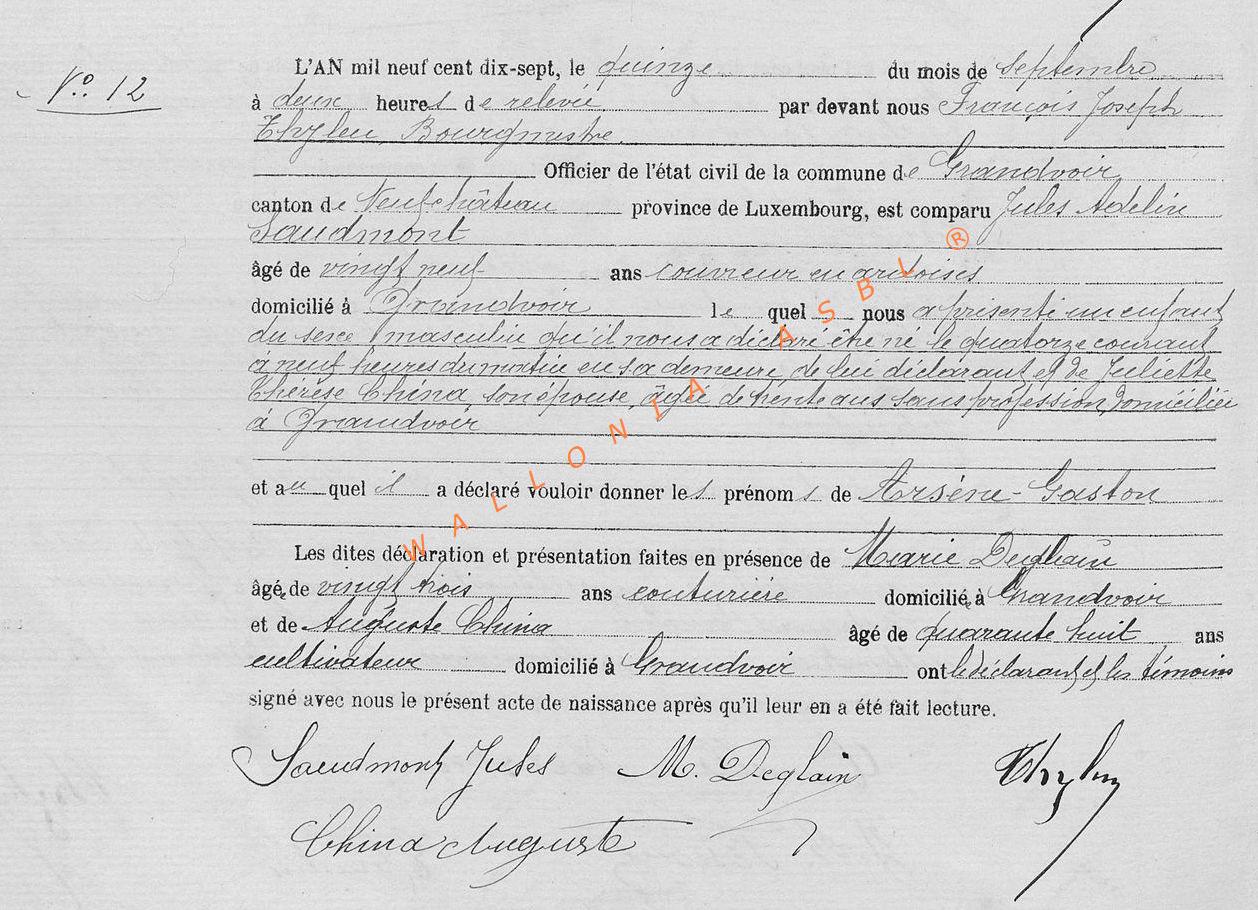 N° 12
L'AN mil neuf cent dix-sept, le quinze du mois de Septembre
à deux heures de relevée par devant nous François Joseph
Thyleu, Bourgmestre
Officier de l'état civil de la commune de Grandvoir
canton de Neufchâteau province de Luxembourg, est comparu Jules Adelin
Saudmont
âgé de vingt neuf ans couvreur en ardoises
domicilié à Grandvoir le quel nous a présenté un enfant
du sexe masculin qu'il nous a déclaré être né le quatorze courant
à neuf heures du matin en sa demeure, de lui déclarant et de Juliette
Thérèse China son épouse, âgée de trente ans sans profession, domiciliée
à Grandvoir
et au quel il a déclaré vouloir donner les prénoms de Arsène-Gaston
Les dites déclaration et présentation faites en présence de Marie Deglain
âgée de vingt trois ans couturière domiciliée à Grandvoir
et de Auguste China âgé de quarante huit ans
cultivateur domicilié à Grandvoir ont le déclarant et les témoins
signé avec nous le présent acte de naissance après qu'il leur en a été fait lecture.
Saudmont Jules M. Deglain
China Auguste
WALLONIA ASBL ®